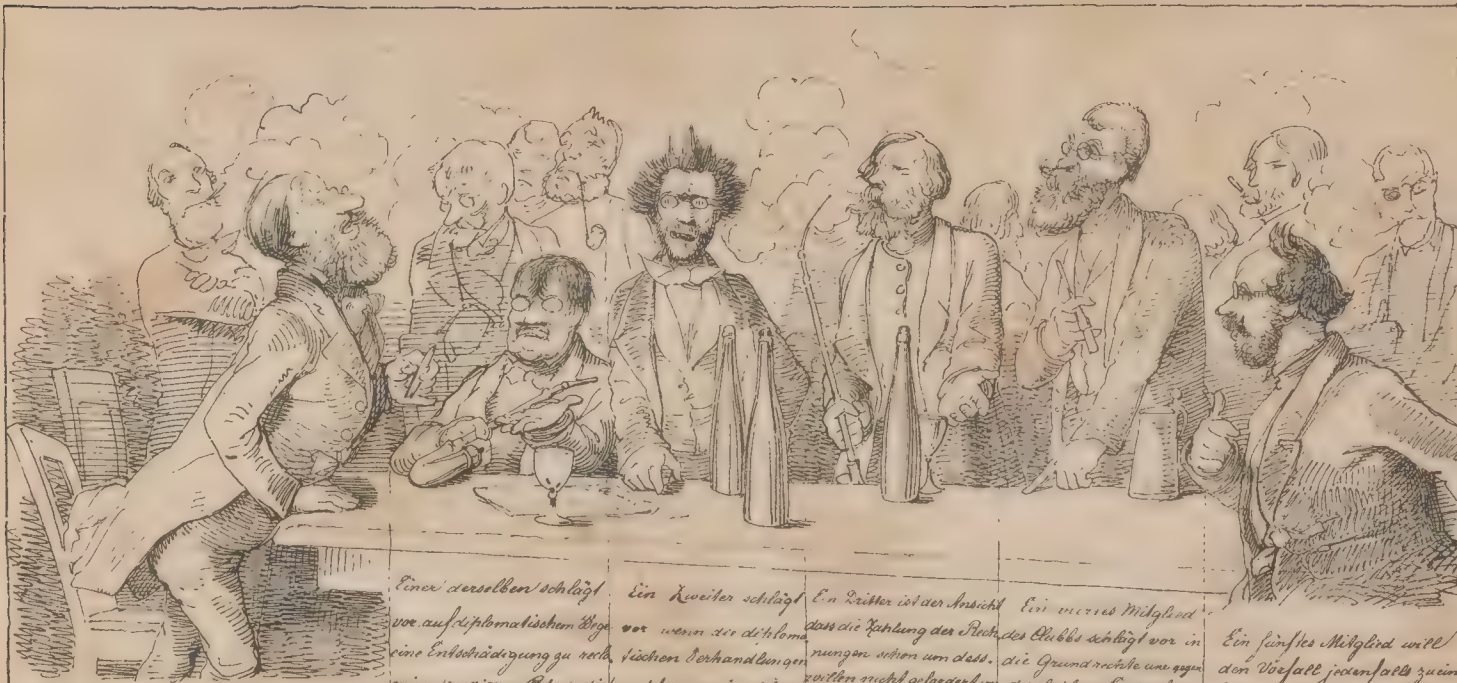 Einer derselben schlägt
vor, auf diplomatischem Wege
eine Entschädigung zu
Ein Zweiter schlägt
vor wenn die diploma
tischen Verhandlungen
Ein Dritter ist der Ansicht
dass die Zahlung der Rech
nungen schon um dess.
willen nicht gefordert
Ein viertes Mitglied
des Clubbs schlägt vor in
die Grundrechte
Ein fünftes Mitglied will
den Vorfall jedenfalls zu ein